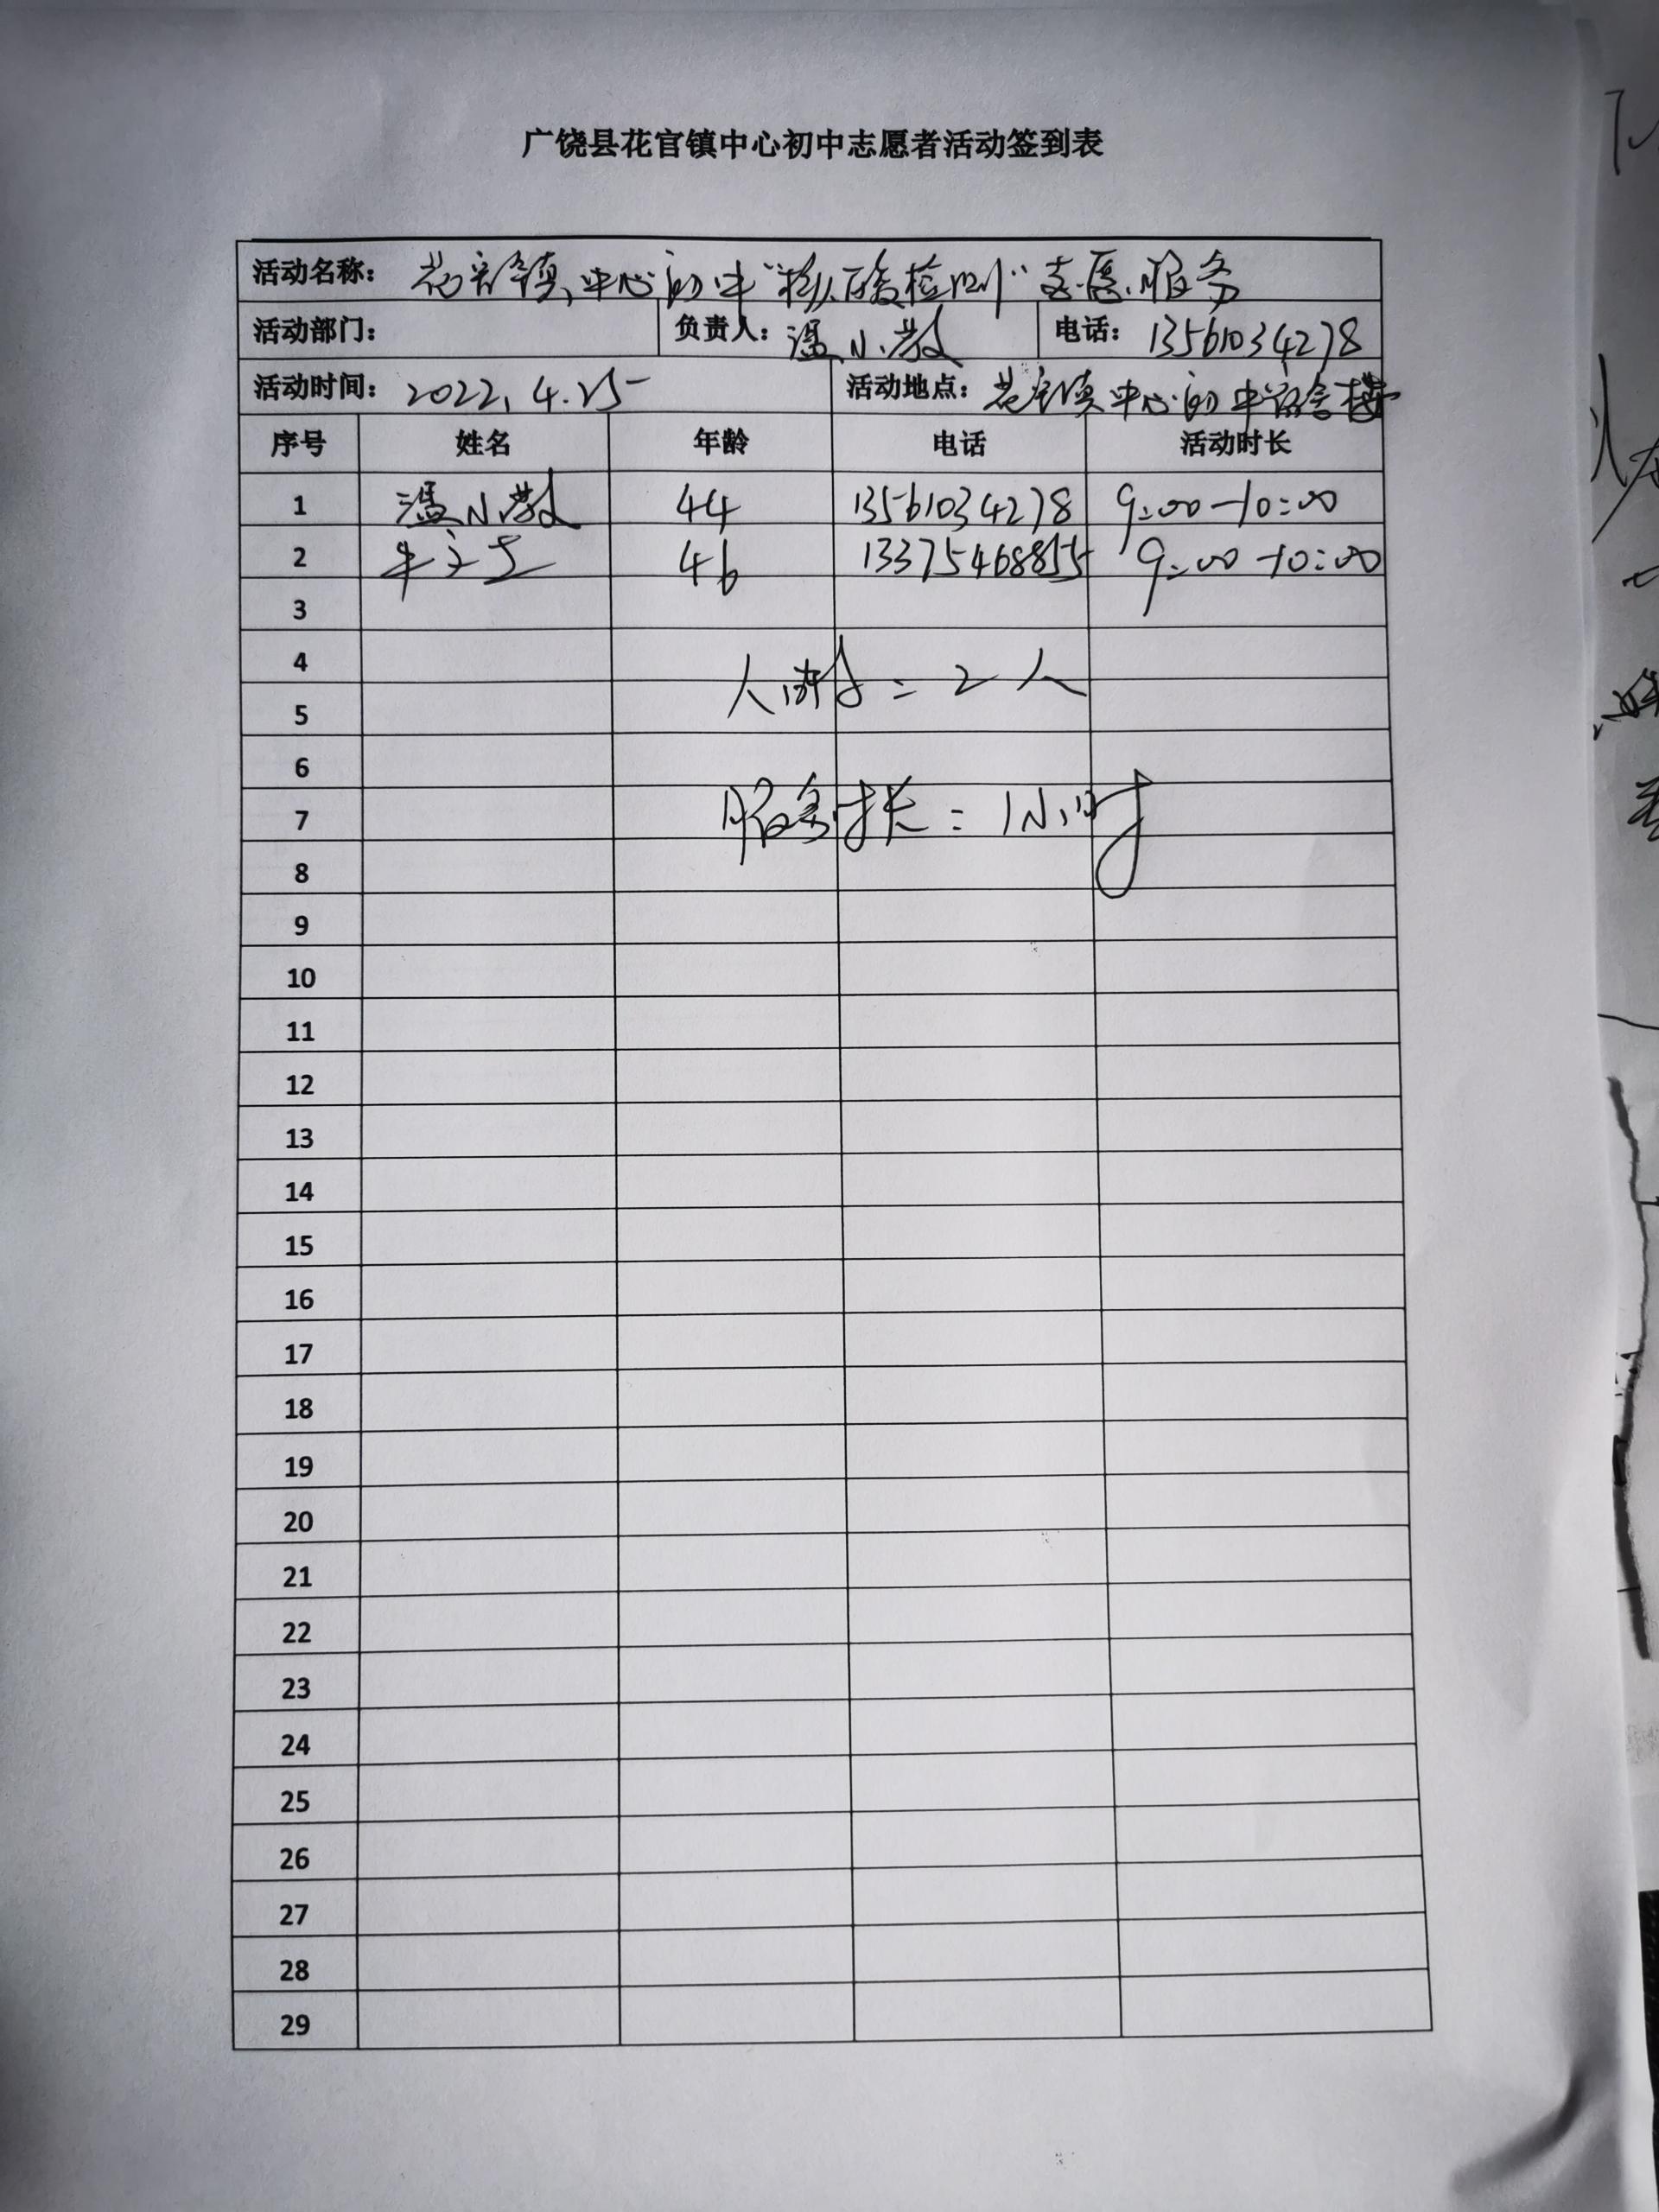 广饶县花官镇中心初中志愿者活动签到表
活动名称： 花官镇中心初中“核酸检测”志愿服务
活动部门： 负责人：温小敏 电话：13561034278
活动时间：2022.4.25 活动地点：花官镇中心初中宿舍楼
序号 姓名 年龄 电话 活动时长
1 温小敏 44 13561034278 9:00-10:00
2 46 13375468855 9:00-10:00
3
4
人数=2人
5
6
服务时长=1小时
7
8
9
10
11
12
13
14
15
16
17
18
19
20
21
22
23
24
25
26
27
28
29